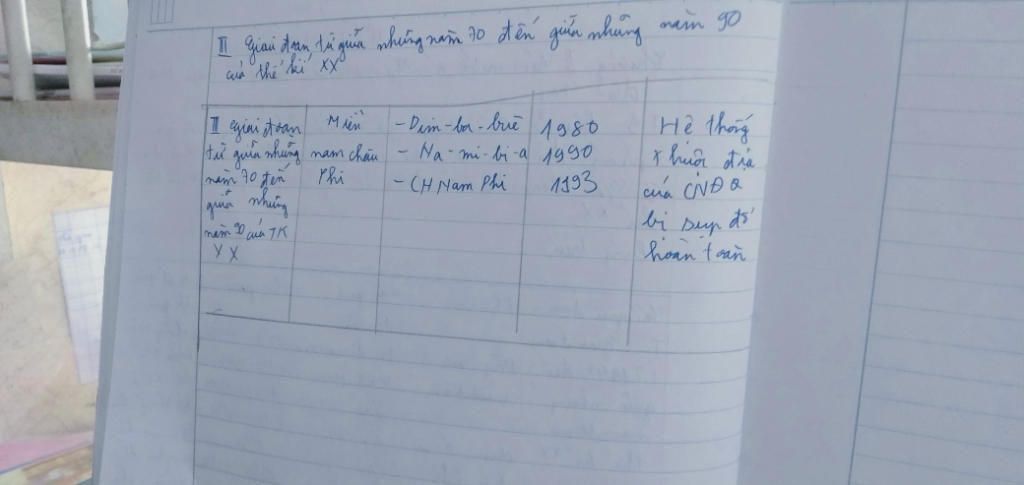 III Giai đoạn từ giữa những năm 70 đến giữa những năm 90
của thế kỉ XX
III Giai đoạn
từ giữa những
năm 70 đến
giữa những
năm 90 của TK
XX
Miền
nam châu
Phi
- Dim-ba-buê
- Na-mi-bi-a
- CH Nam Phi
1980
1990
1993
Hệ thống
thuộc địa
của CNĐQ
bị sụp đổ
hoàn toàn